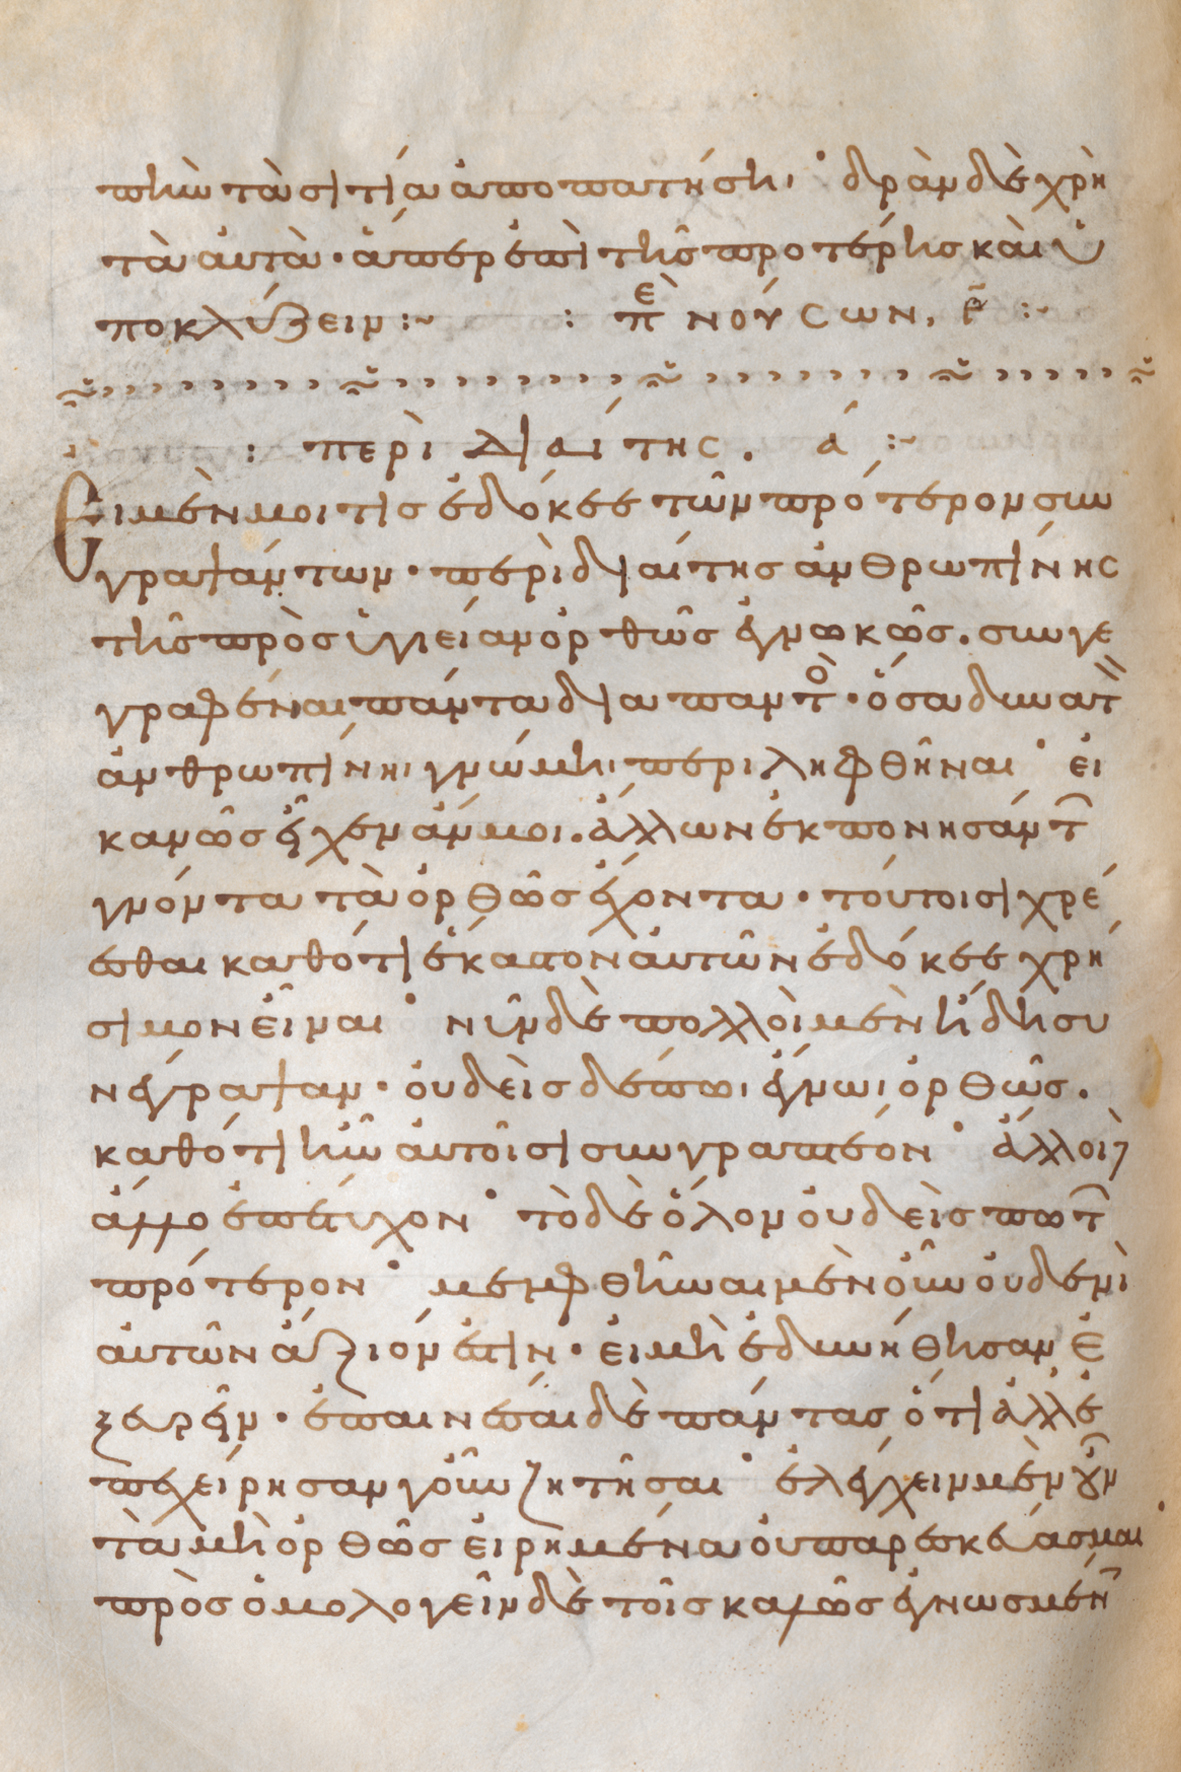 πιὼν τὰ σιτία ἀποπατήσηι· δρᾶν δὲ χρὴ
τὰ αὐτὰ· ἅπερ ἐπὶ τῆς προτέρης καὶ ὑ
ποκλύζειν :~ : πε νούσων, :~
: περὶ διαίτης. α :~
Εἰ μὲν μοι τίς ἐδόκεε τῶν πρότερον συγ
γραψάντων· περὶ διαίτης ἀνθρωπίνης
τῆς πρὸς ὑγιείαν ὀρθῶς ἐγνωκὼς. συγγε
γραφέναι πάντα διὰ παντὸ· ὅσα δυνατ
ἀνθρωπίνηι γνώμηι περιληφθῆναι· εἰ
κανῶς εἶχεν ἄν μοι. ἄλλων ἐκπονησάντ
γνόντα τὰ ὀρθῶς ἔχοντα· τούτοισι χρέ
εσθαι καθότι ἕκαστον αὐτῶν ἐδόκεε χρή
σιμον εἶναι· νῦν δὲ πολλοὶ μὲν ἤδη συ
νέγραψαν· οὐδεὶς δέ πω ἔγνω ὀρθῶς.
καθότι ἦν αὐτοῖσι συγγραπτέον· ἄλλοι
ἄλλο ἐπέτυχον· τὸ δὲ ὅλον οὐδεὶς πωτ
πρότερον· μεμφθῆναι μὲν οὖν οὐδενὶ
αὐτῶν ἄξιόν ἐστιν· εἰ μὴ ἐδυνήθησαν ἐ
ξευρεῖν· ἐπαινέσαι δὲ πάντας ὅτι ἀλλ' ἐ
πεχείρησαν γοῦν ζητῆσαι· ἐλέγχειν μὲν οὖν
τὰ μὴ ὀρθῶς εἰρημένα οὐ παρεσκεύασμαι·
πρὸς ὁμολογεῖν δὲ τοῖς καλῶς ἐγνωσμέν